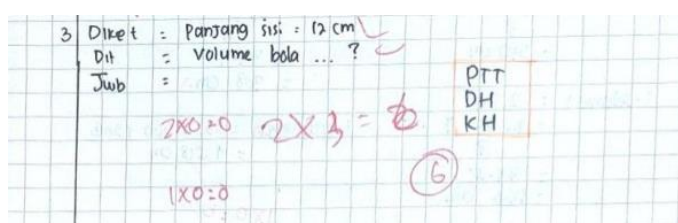 3 Diket : Panjang sisi = 12 cm
Dit = Volume bola ... ?
Jwb =
PTT
DH
KH
2x0=0 2x3=6
6
1x0=0